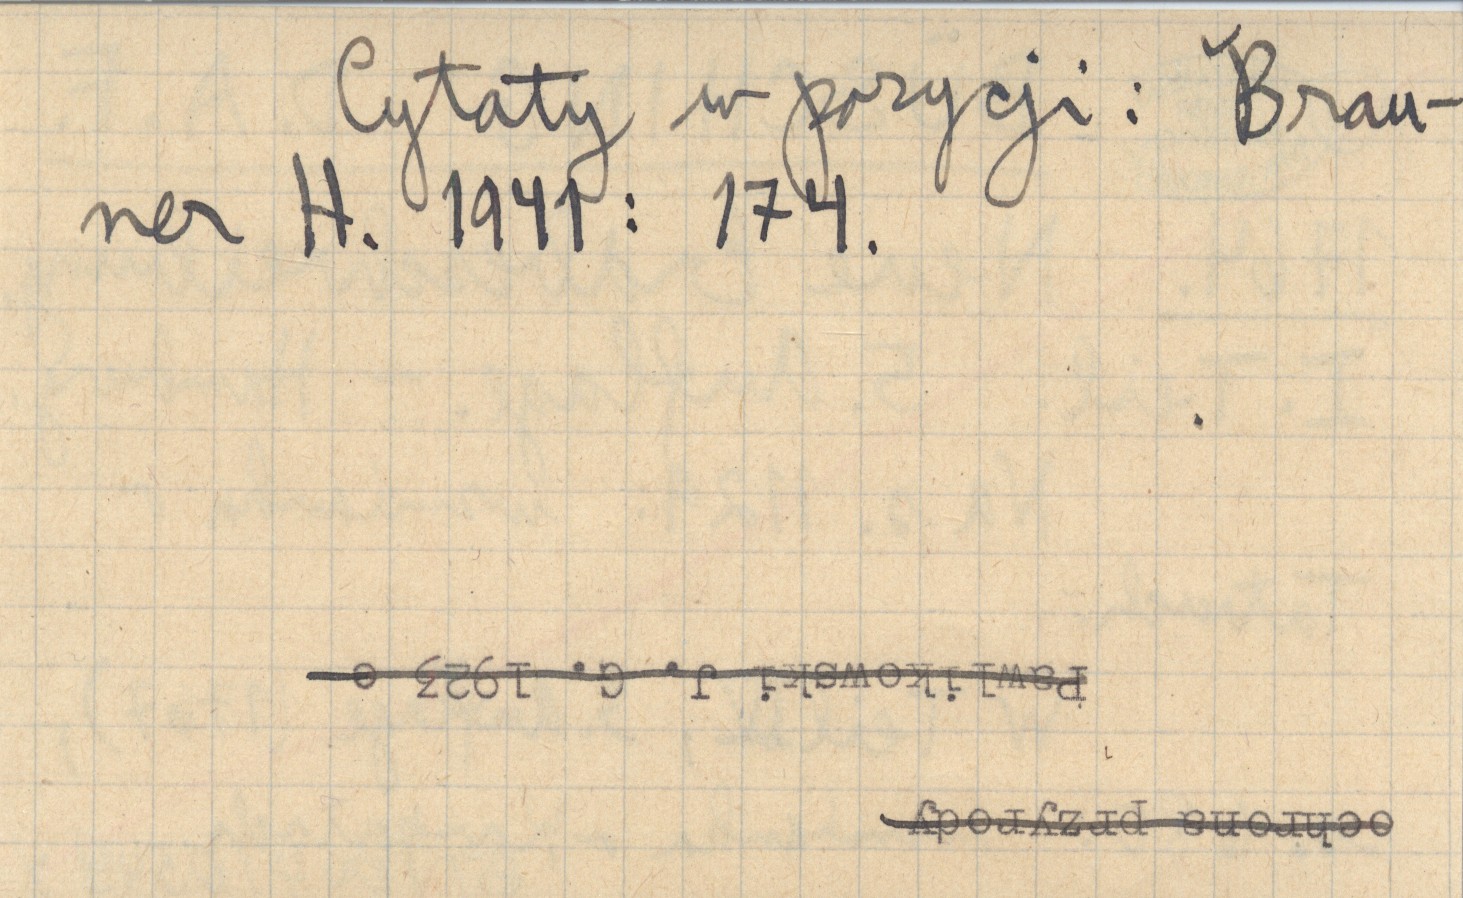 Cytaty w pozycji: Brau-
ner H. 1941: 174.
ochrona przyrody
Pawlikowski J. G. 1923 e